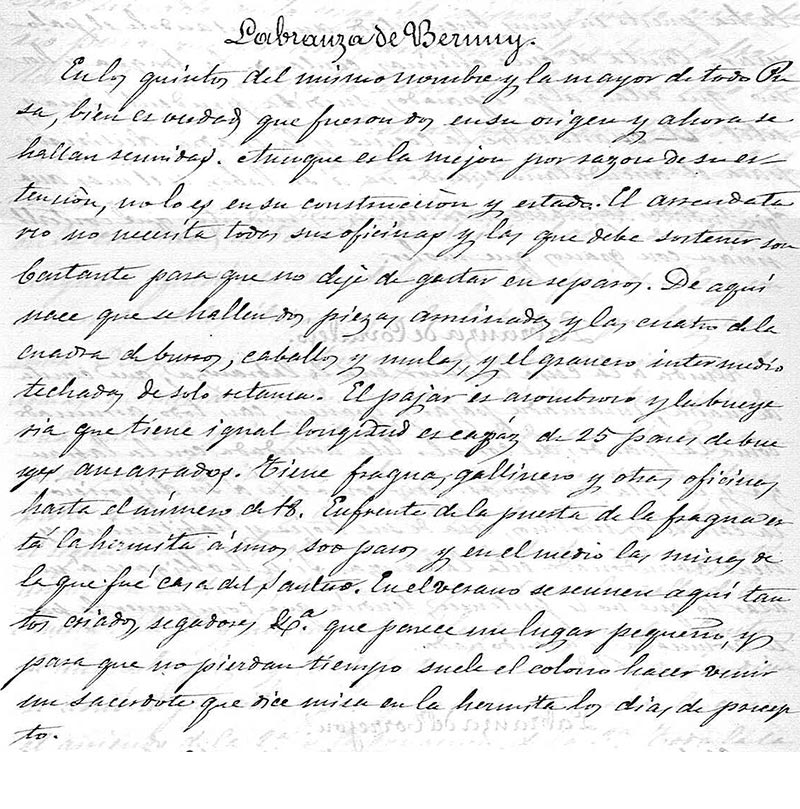 Labranza de Bernuy.
En los quintos del mismo nombre y la mayor de todo Pu
sa, bien es verdad que fueron dos en su origen y ahora se
hallan reunidas. Aunque es la mejor por razon de su es-
tensiòn, no lo es en su construcciòn y estado. El arrendata
rio no necesita todas sus oficinas y las que debe sostener son
bastante para que no deje de gastar en reparos. De aqui
nace que se hallen dos piezas arruinadas y las cuatro de la
cuadra de burros, caballos y mulas, y el granero intermedio
techadas de solo retama. El pajar es asombroso y la bueye
ria que tiene igual longitud es capáz de 25 pares de bue
yes amarrados. Tiene fragua, gallinero y otras oficinas
hasta el número de 18. Enfrente de la puerta de la fragua es
tá la hermita á unos 500 pasos y en el medio las minas de
la que fué casa del Santero. En el verano se reunen aquí tan
tos criados, segadores &.ª que parece un lugar pequeño, y
para que no pierdan tiempo suele el colono hacer venir
un sacerdote que dice misa en la hermita los dias de precep
to.